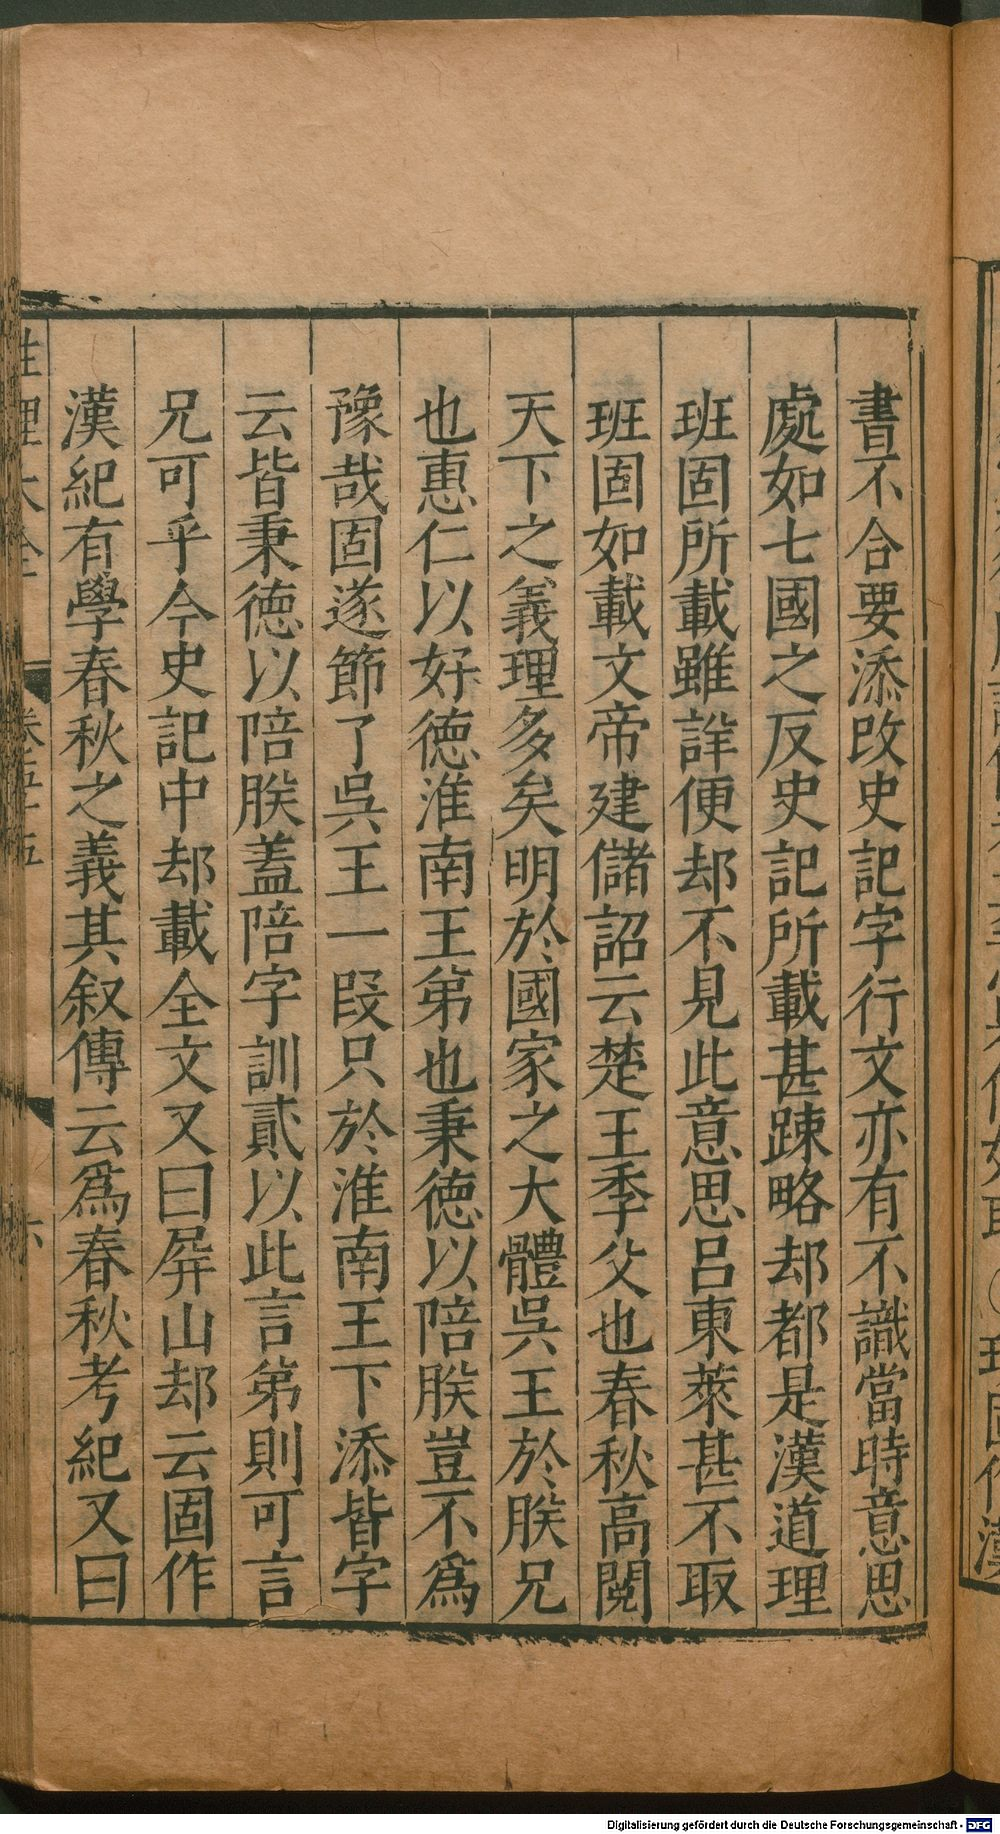 書不合要添改史記字行文亦有不識當時意思
處如七國之反史記所載甚踈略却都是漢道理
班固所載雖詳便却不見此意思呂東萊甚不取
班固如載文帝建儲詔云楚王季父也春秋高閱
天下之義理多矣明於國家之大體吳王於朕兄
也惠仁以好德淮南王弟也秉德以陪朕豈不爲
豫哉固遂節了吳王一段只於淮南王下添皆字
云皆秉德以陪朕蓋陪字訓貳以此言弟則可言
兄可乎今史記中却載全文又曰屏山却云固作
漢紀有學春秋之義其叙傳云爲春秋考紀又曰
性理大全
卷五十五
六
Digitalisierung gefördert durch die Deutsche Forschungsgemeinschaft - DFG